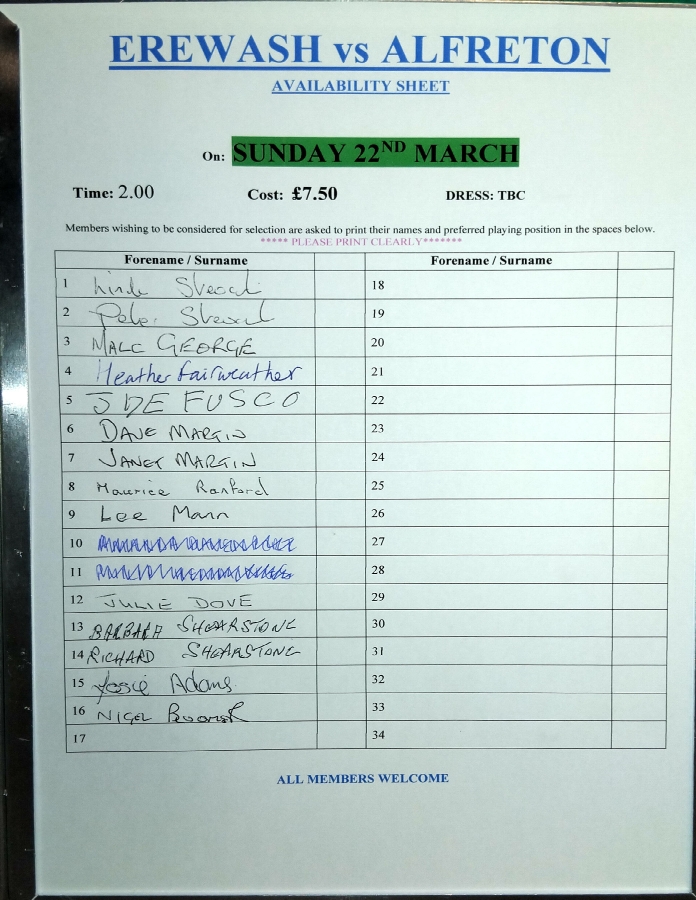 EREWASH vs ALFRETON
AVAILABILITY SHEET
On: SUNDAY 22ND MARCH
Time: 2.00 Cost: £7.50 DRESS: TBC
Members wishing to be considered for selection are asked to print their names and preferred playing position in the spaces below.
***** PLEASE PRINT CLEARLY*******
Forename / Surname Forename / Surname
1 18
2 Peter 19
3 MALC GEORGE 20
4 Heather Fairweather 21
5 J DE FUSCO 22
6 DAVE MARTIN 23
7 JANET MARTIN 24
8 Maurice Ranford 25
9 Lee Mann 26
10 27
11 28
12 JULIE DOVE 29
13 BARBARA SHEARSTONE 30
14 RICHARD SHEARSTONE 31
15 Josie Adams 32
16 NIGEL 33
17 34
ALL MEMBERS WELCOME